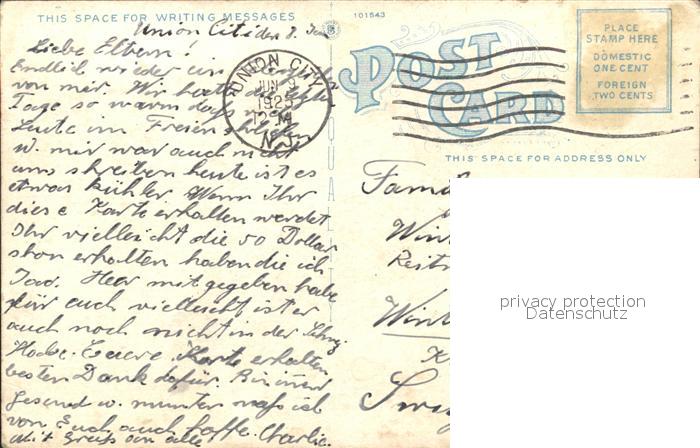 THIS SPACE FOR WRITING MESSAGES
101543
Union City den 8. Juni
Liebe Eltern!
Endlich wieder ein
von mir. Wir hatten die letzte
Tage so warm das
Leute im Freien
u. mir war auch nicht
ums shreiben heute ist es
etwas kühler. Wenn Ihr
diese Karte erhalten werdet
Ihr vielleicht die 50 Dollar
shon erhalten haben die ich
mit gegeben habe
für auch vielleicht ist er
auch noch nicht in der
Habe Eure Karte erhalten
besten Dank dafür. Bin immer
gesund u. munter was ich
von Euch auch hoffe. Charlie.
Mit Gruss an alle
UNION CITY
JUN 9
1925
12 M
N.J.
POST CARD
PLACE
STAMP HERE
DOMESTIC
ONE CENT
FOREIGN
TWO CENTS
THIS SPACE FOR ADDRESS ONLY
Famil
Wint
Reit
Wint
K
privacy protection
Datenschutz